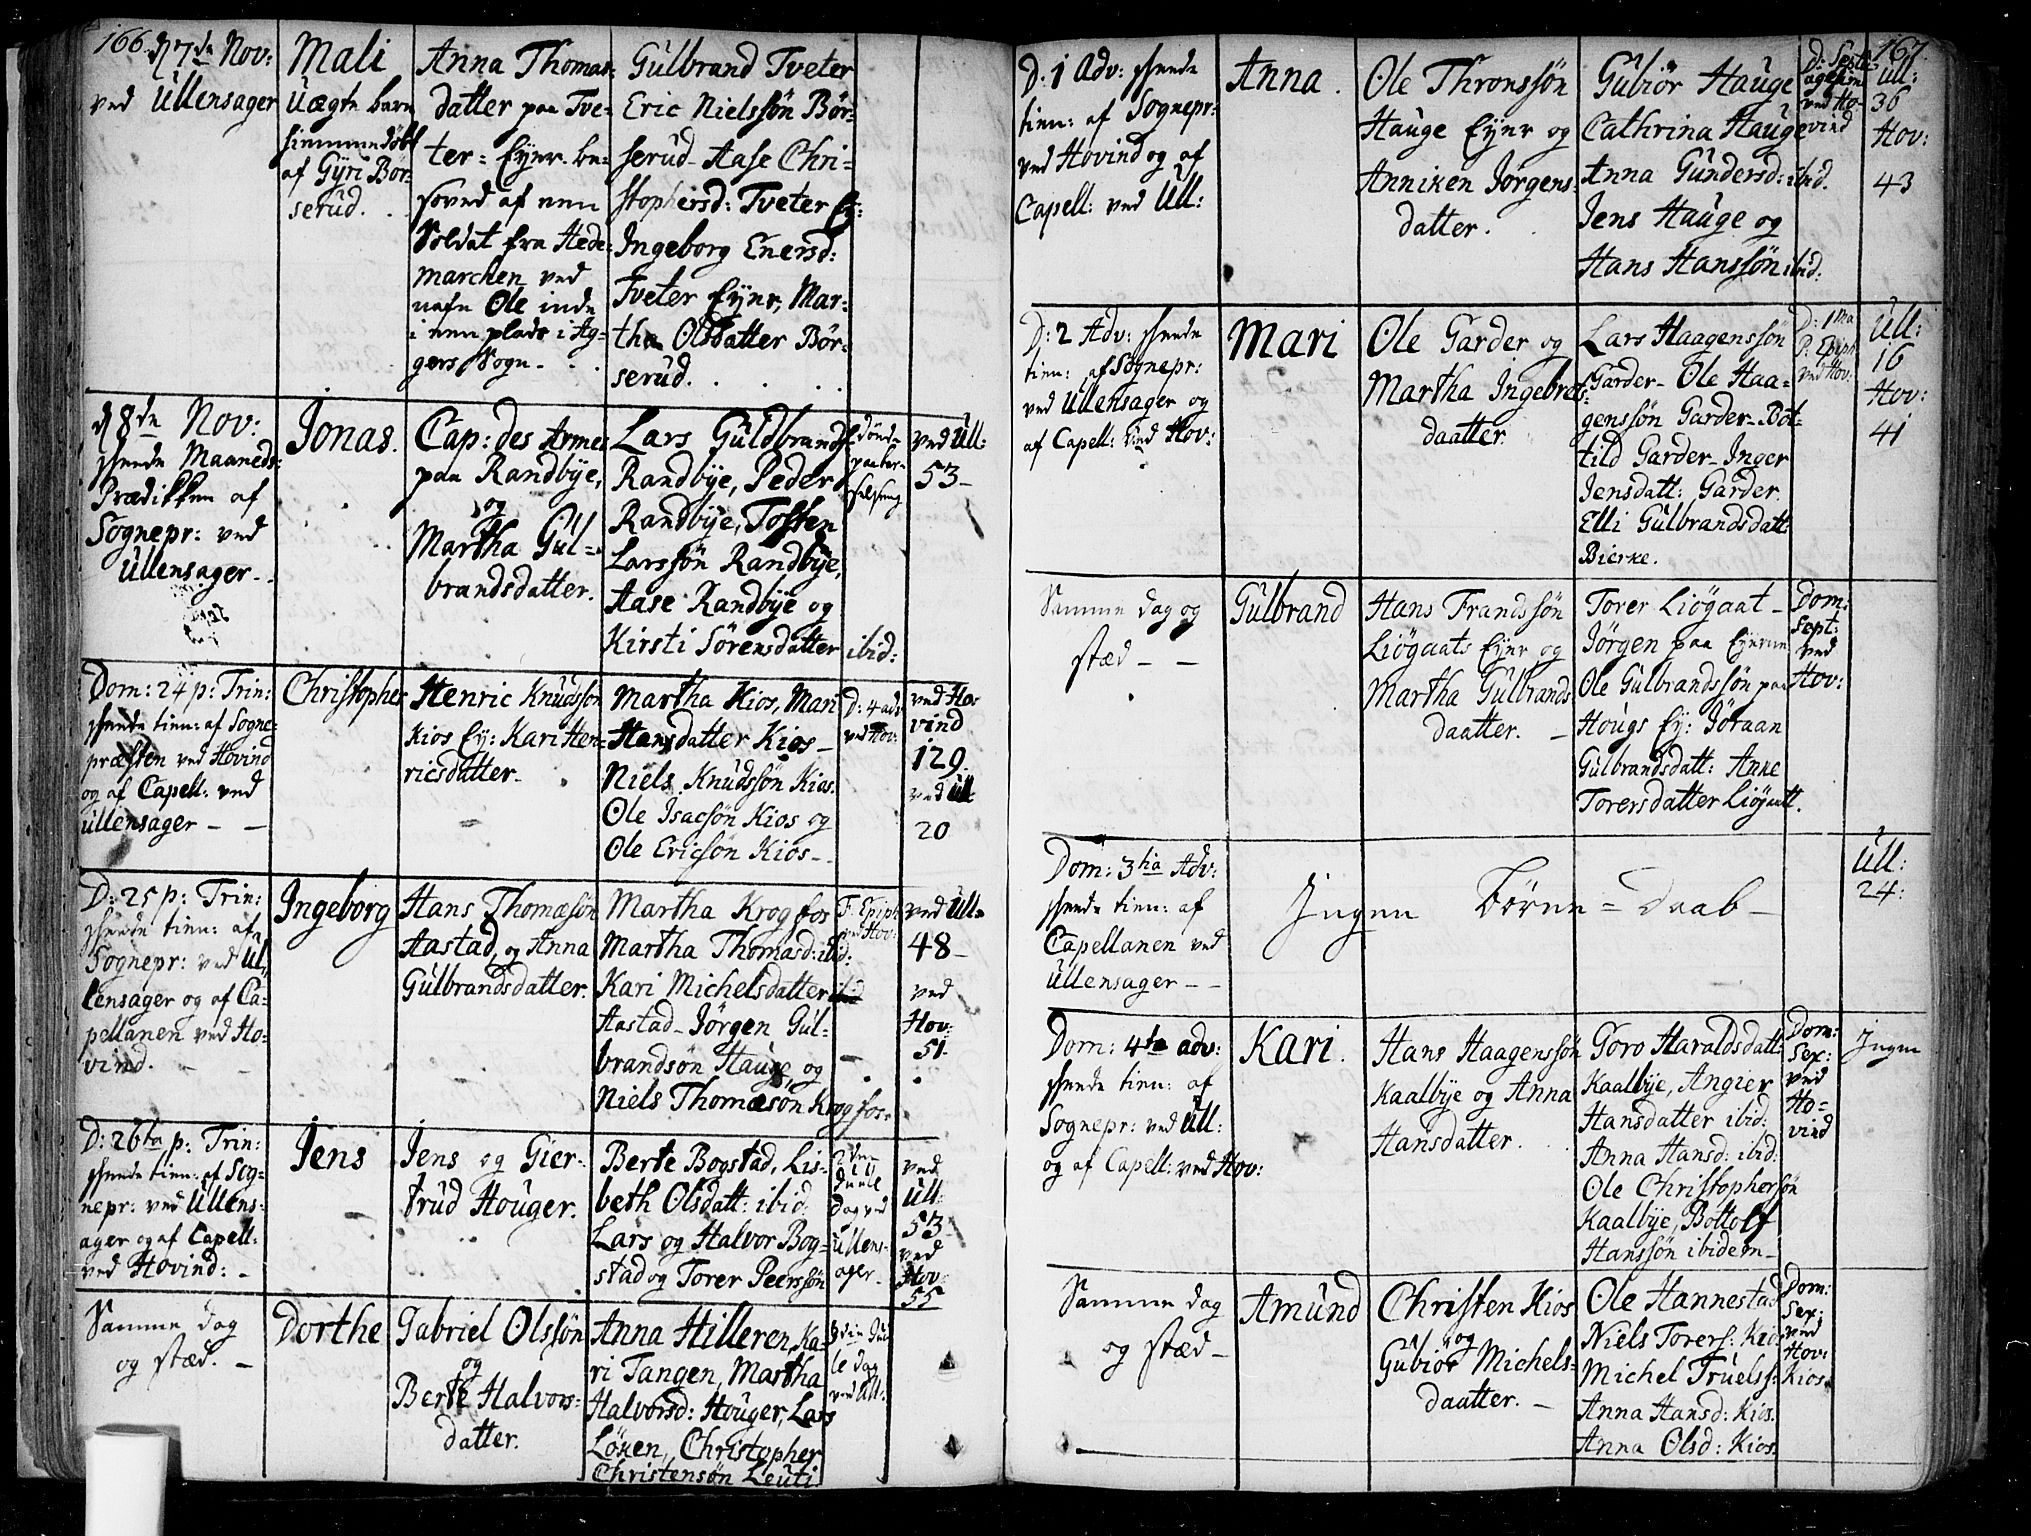 166.
d 7de Nov:
ved Ullensager
Mali
Uægte barn
hiemmedöbt
af Gyri Bör-
serud.
Anna Thomas-
datter paa Tve-
ter- Eyer- be-
soved af een
Soldat fra Hede-
marchen ved
nafn Ole inde
i een plads i Ag-
gers Sogn-
Gulbrand Tveter
Eric Nielssön Bör-
serud- Aase Chri-
stophersd: Tveter Ey:
Ingeborg Enersd:
Tveter Eyer, Mar-
tha Olsdatter Bör-
serud.
d 8de Nov:
skeede Maaneds-
Prædikken af
Sognepr: ved
Ullensager-
Jonas.
Cap: des Armes
paa Randbye,
og
Martha Gul-
brandsdatter.
Lars Guldbrands
Randbye, Peder
Randbye, Tosten
Larssön Randbye,
Aase Randbye og
Kirsti Sörensdatter ibid:
ved Ull:
53-
Dom: 24 p: Trin:
skeede tien: af Sogne-
præsten ved Hovind
og af Capell: ved
Ullensager - -
Christopher
Henric Knudssön
Kios Ey: Kari Hen-
ricsdatter-
Martha Kios, Mari
Hansdatter Kios-
Niels Knudssön Kios.
Ole Isacsön Kios og
Ole Ericsön Kios-
D: 4 adv
ved Hov:
ved Ho-
vind
129.
ved Ull:
20
D: 25 p: Trin:
skeede tien: af
Sognepr: ved Ul-
lensager og af Ca-
pellanen ved Ho-
vind.
Ingeborg
Hans Thomæsön
Aastad, og Anna
Gulbrandsdatter.
Martha Krogfos
Martha Thomasd: ibid:
Kari Michelsdatter ibid
Aastad- Jörgen Gul-
brandsön Hauge, og
Niels Thomæsön Krogfos-
F. Epiph
ved Hov:
ved Ull-
48-
ved
Hov:
51.
D: 26ta p: Trin:
skeede tien: af Sog-
nepr: ved Ullens-
ager og af Capell:
ved Hovind: -
Jens
Jens og Gier-
trud Houger.
Berte Bogstad, Lis-
beth Olsdatt: ibid:
Lars og Halvor Bog-
stad og Torer Peerssön
2den
Juule
Dag ved
Ullens-
ager-
ved
Ull:
53
ved
Hov:
55
Samme dag
og stæd. -
Dorthe
Gabriel Olssön
og
Berte Halvors-
datter.
Anna Hilleren, Ka-
ri Tangen, Martha
Halvorsd: Houger, Lars
Löken, Christopher
Christensön Leuti
3die Juu
le dag
ved Ull.
167.
D: 1 Adv: skeede
tien: af Sognepr:
ved Hovind og af
Capell: ved Ull:
Anna.
Ole Thronssön
Hauge Eyer og
Anniken Jörgens-
datter.
Gubiör Hauge
Cathrina Hauge
Anna Gundersd: ibid.
Jens Hauge og
Hans Hanssön ibid.
ved Ho-
vind
Ull:
36
Hov:
43
D: 2 Adv: skeede
tien: af Sognepr:
ved Ullensager og
af Capell: ved Hov:
Mari
Ole Garder og
Martha Ingebrets-
daatter.
Lars Haagenssön
Garder- Ole Haa-
genssön Garder- Bot-
tild Garder- Inger
Jensdatt: Garder.
Elli Gulbrandsdatt
Bierke.
D: 1ma
P: Epiph
ved Hov:
Ull:
16
Hov:
41
Samme dag og
stæd - -
Gulbrand
Hans Frandssön
Liögaats Eyer og
Martha Gulbrands
daatter. -
Torer Liögaat-
Jörgen paa Eyerne
Ole Gulbrandssön paa
Hougs Ey: Jöraan
Gulbrandsdatt: Anne
Torersdatter Liögaatt.
Dom:
Sept:
ved
Hov:
Dom: 3tia Adv:
skeede tien: af
Capellanen ved
Ullensager - -
Ingen Börne-Daab-
Ull:
24:
Dom: 4ta adv:
skeede tien: af
Sognepr: ved Ull:
og af Capell: ved Hov:
Kari.
Hans Haagenssön
Kaalbye og Anna
Hansdatter.
Goro Haraldsdatt:
Kaalbye, Angier
Hansdatter ibid:
Anna Hansd: ibid:
Ole Christophersön
Kaalbye, Bottolf
Hanssön ibidem-
Dom:
Sex:
ved
Ho-
vind
Ingen
Samme dag
og stæd-
Amund
Christen Kios
og
Gubiör Michels-
daatter. -
Ole Hannestad
Niels Torers: Kios
Michel Truelss:
Anna Hansd: Kios.
Anna Olsd: Kios.
Dom:
Sex:
ved
Hov:
Kios.